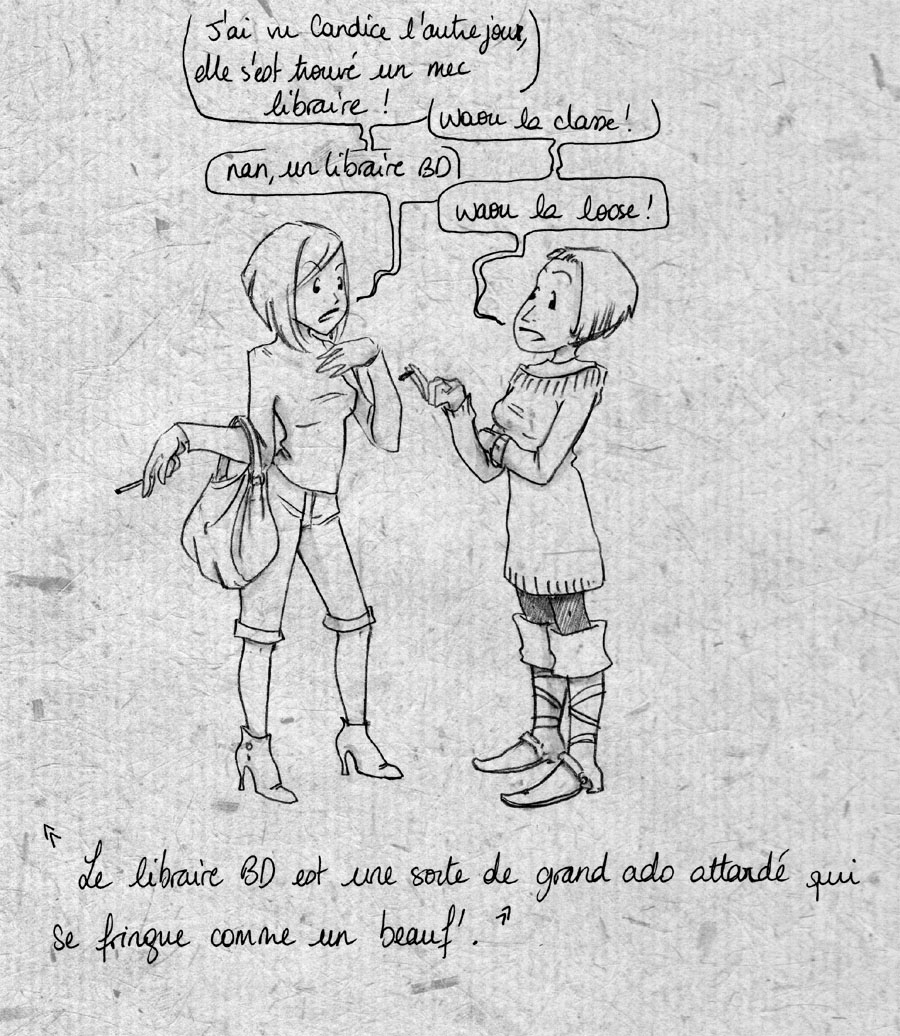 J'ai vu Candice l'autre jour,
elle s'est trouvé un mec
libraire !
waou la classe !
nan, un libraire BD
waou la loose !
" Le libraire BD est une sorte de grand ado attardé qui
se fringue comme un beauf'. "